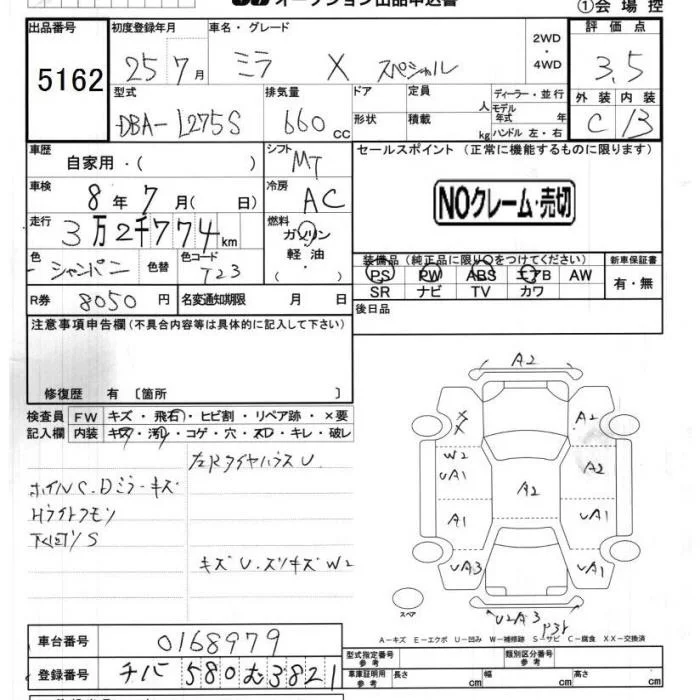 オークション出品申込書
①会場控
出品番号 初度登録年月 車名・グレード 2WD・4WD 評価点
5162 25 7月 ミラ X スペシャル 3.5
型式 排気量 ドア 定員 人 ディーラー・並行 外装 内装
DBA-L275S 660cc 形状 積載 kg モデル年式 年 ハンドル 左・右 C B
車歴 シフト セールスポイント (正常に機能するものに限ります)
自家用・( ) MT
車検 冷房
8年7月( 日) AC NOクレーム・売切
走行 燃料
3万2千774km ガソリン
色 色替 色コード 軽油 装備品(純正品に限り○をつけてください) 新車保証書
シャンパン T23 PS PW ABS エアB AW 有・無
SR ナビ TV カワ
R券 8050円 名変通知期限 月 日 後日品
注意事項申告欄(不具合内容等は具体的に記入して下さい)
修復歴 有 〔箇所 〕
検査員 FW キズ・飛石・ヒビ割・リペア跡・×要
記入欄 内装 キズ・汚れ・コゲ・穴・スレ・キレ・破レ
左RタイヤハウスU.
ホイルC.Dミラーキズ
Hライトクモリ
下回りS
キズU.スリキズW2
A2
X X A2
W2 A2
UA1 A2
A1 UA1
UA3 UA1
スペア U2A3
A-キズ E-エクボ U-凹み W-補修跡 S-サビ C-腐食 XX-交換済
車台番号 0168979 型式指定番号 参考 類別区分番号 参考
登録番号 チバ 580 む 3821 車庫証明用 参考 長さ cm 幅 cm 高さ cm